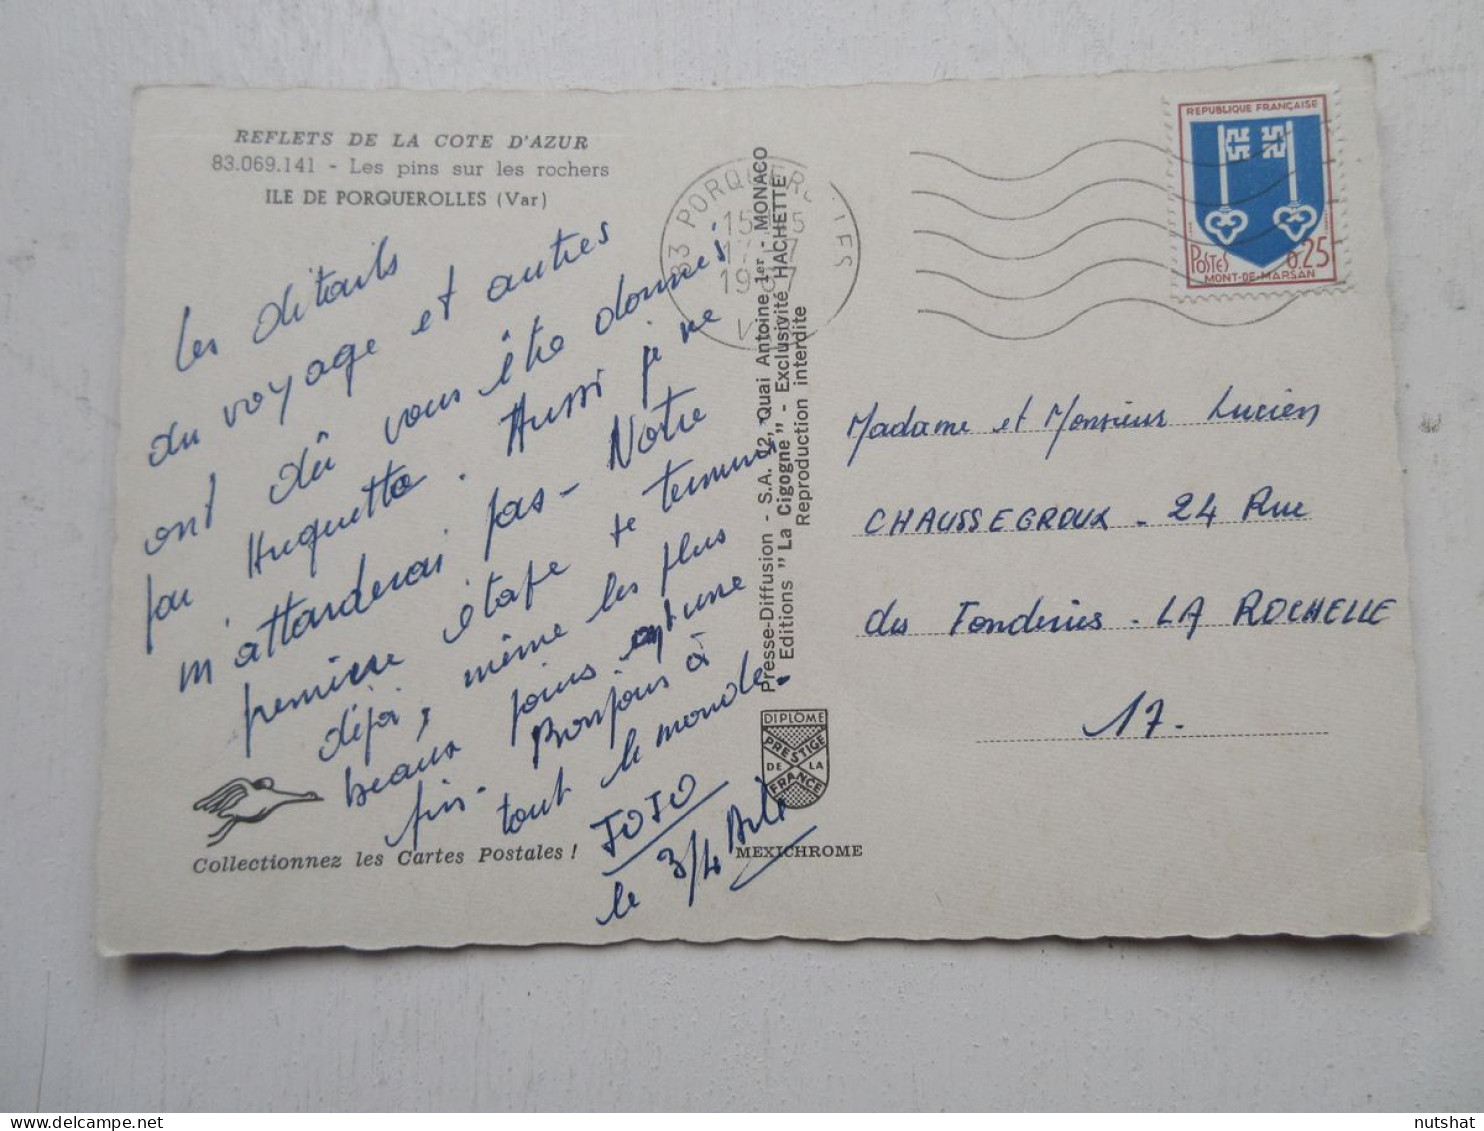 REFLETS DE LA COTE D'AZUR
83.069.141 - Les pins sur les rochers
ILE DE PORQUEROLLES (Var)
Les détails
du voyage et autres
ont dû vous être donnés
par Huguette. Aussi je ne
m'attarderai pas - Notre
première étape se termine
déjà, même les plus
beaux jours ont une
fin. Bonjour à
tout le monde.
JOJO
le 3/4
Collectionnez les Cartes Postales !
83 PORQUEROLLES
17
1967
Presse-Diffusion - S.A. 12, Quai Antoine 1er - MONACO
Editions "La Cigogne" - Exclusivité HACHETTE
Reproduction interdite
DIPLOME
PRESTIGE
DE LA
FRANCE
MEXICHROME
REPUBLIQUE FRANÇAISE
POSTES 0,25
MONT-DE-MARSAN
Madame et Monsieur Lucien
CHAUSSEGROUX - 24 Rue
des Fonderies - LA ROCHELLE
17.
nutshat